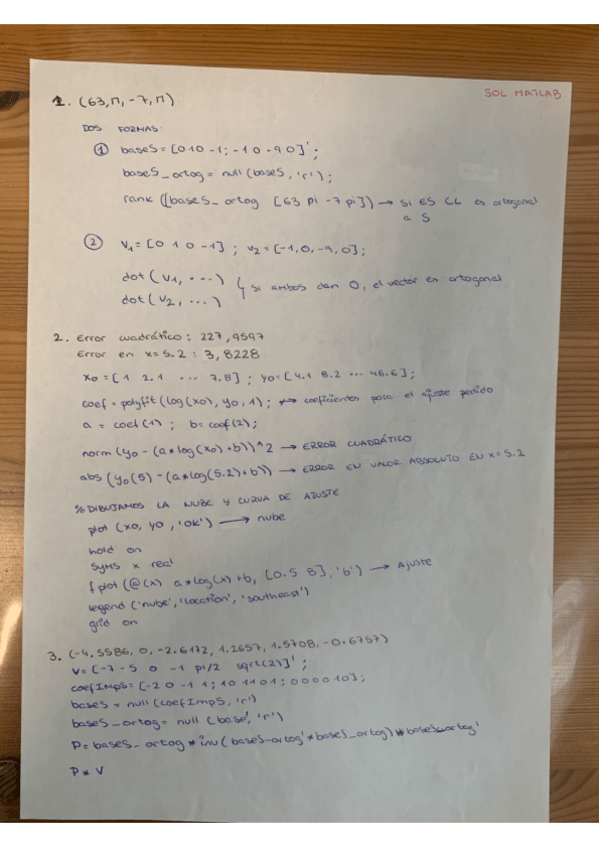 SOL MATLAB
1. (63, π, -7, π)
DOS FORMAS:
① baseS = [0 1 0 -1; -1 0 -9 0]';
baseS_ortog = null (baseS, 'r');
rank ([baseS_ortog [63 pi -7 pi]) → si ES CL es ortogonal a S
② v1 = [0 1 0 -1] ; v2 = [-1, 0, -9, 0];
dot (v1, ...)
dot (v2, ...) } si ambos dan 0, el vector es ortogonal
2. Error cuadrático: 227,9597
Error en x=5.2 : 3,8228
xo = [1 2.1 ... 7.8] ; yo = [4.1 8.2 ... 46.6];
coef = polyfit (log(xo), yo, 1); → coeficientes para el ajuste pedido
a = coef(1) ; b = coef(2);
norm (yo - (a*log(xo)+b))^2 → ERROR CUADRÁTICO
abs (yo(5) - (a*log(5.2)+b)) → ERROR EN VALOR ABSOLUTO EN x=5.2
% DIBUJAMOS LA NUBE Y CURVA DE AJUSTE
plot (xo, yo, 'ok') → nube
hold on
syms x real
fplot (@(x) a*log(x)+b, [0.5 8], 'b') → Ajuste
legend ('nube', 'location', 'southeast')
grid on
3. (-4.5586, 0, -2.6172, 1.2657, 1.5708, -0.6757)
V = [-7 -5 0 -1 pi/2 sqrt(2)]';
coefImpS = [-2 0 -1 1; 1 0 1 1 0 1; 0 0 0 0 1 0];
baseS = null (coefImpS, 'r')
baseS_ortog = null (base', 'r')
P = baseS_ortog * inv (baseS_ortog' * baseS_ortog) * baseS_ortog'
P * V